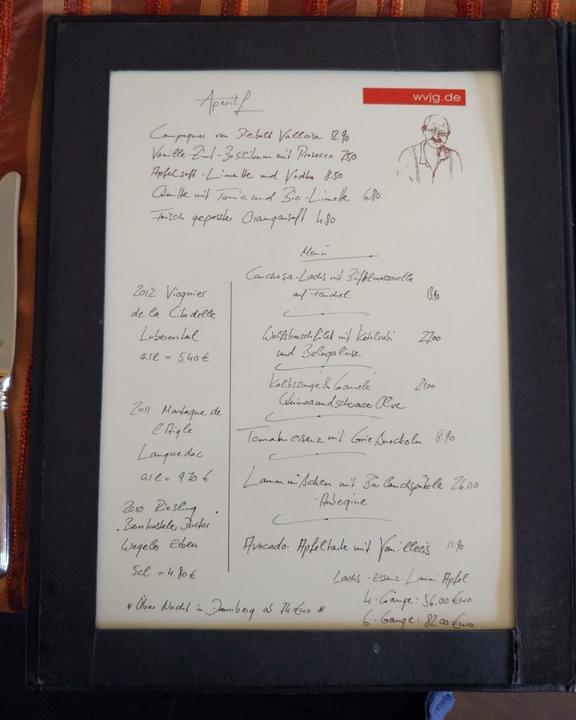 Aperitif
wvjg.de
Champagner von 12.90
Vanille-Zimt- mit Prosecco 7.50
Apfelsaft-Limette und Vodka 8.50
Quitte mit Tonic und Bio-Limette 6.80
Frisch gepresster Orangensaft 4.80
Menü
-Lachs mit Büffelmozzarella
auf Fenchel
Wolfsbarschfilet mit Kohlrabi 27.00
und Belugalinse
Kalbszunge & Garnele 21.00
Quinoa und schwarze Olive
Tomatenessenz mit 8.90
mit 26.00
-Aubergine
Avocado-Apfeltarte mit Vanilleeis 11.90
Lachs-Essenz-Lamm-Apfel
4-Gänge: 56.00 Euro
6-Gänge: 82.00 Euro
2012 Viognier
de la Citadelle
Luberontal
0.1l = 5.40 €
2011 Montagne de
l'Aigle
Languedoc
0.1l = 9.70 €
2010 Riesling
Bernkasteler Doctor
Wegeler Erben
5cl = 4.80 €
* Über Nacht in ab 74 Euro *